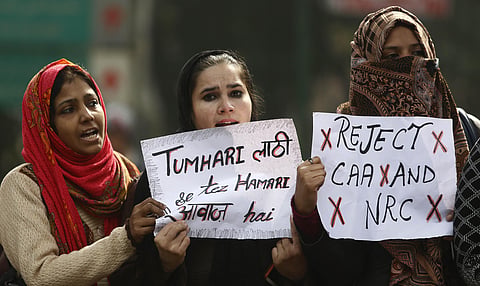 TUMHARI लाठी
से tez HAMARI
आवाज hai
REJECT
CAA AND
NRC